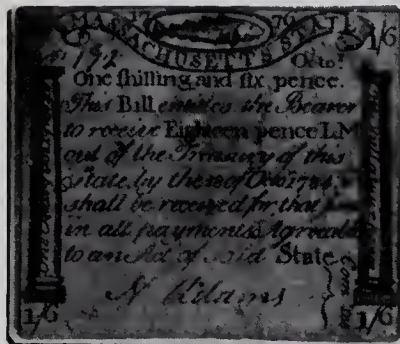 MASSACHUSETTS STATE
17 76
1/6
192
One shilling and six pence.
This Bill entitles the Bearer
to receive Eighteen pence LM
out of the Treasury of this
State by the 18 of Octo 1784
shall be received for that
in all payments Agreeable
to an Act of said State
N Adams
Com tee
1/6 1/6